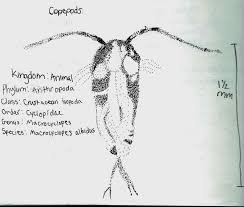 Copepods.
Kingdom: Animal
Phylum: Arthropoda
Class: Crustacean
Order: Cyclopidae
Genus: Macrocyclopes
Species: Macrocyclopes albidus
1½
mm